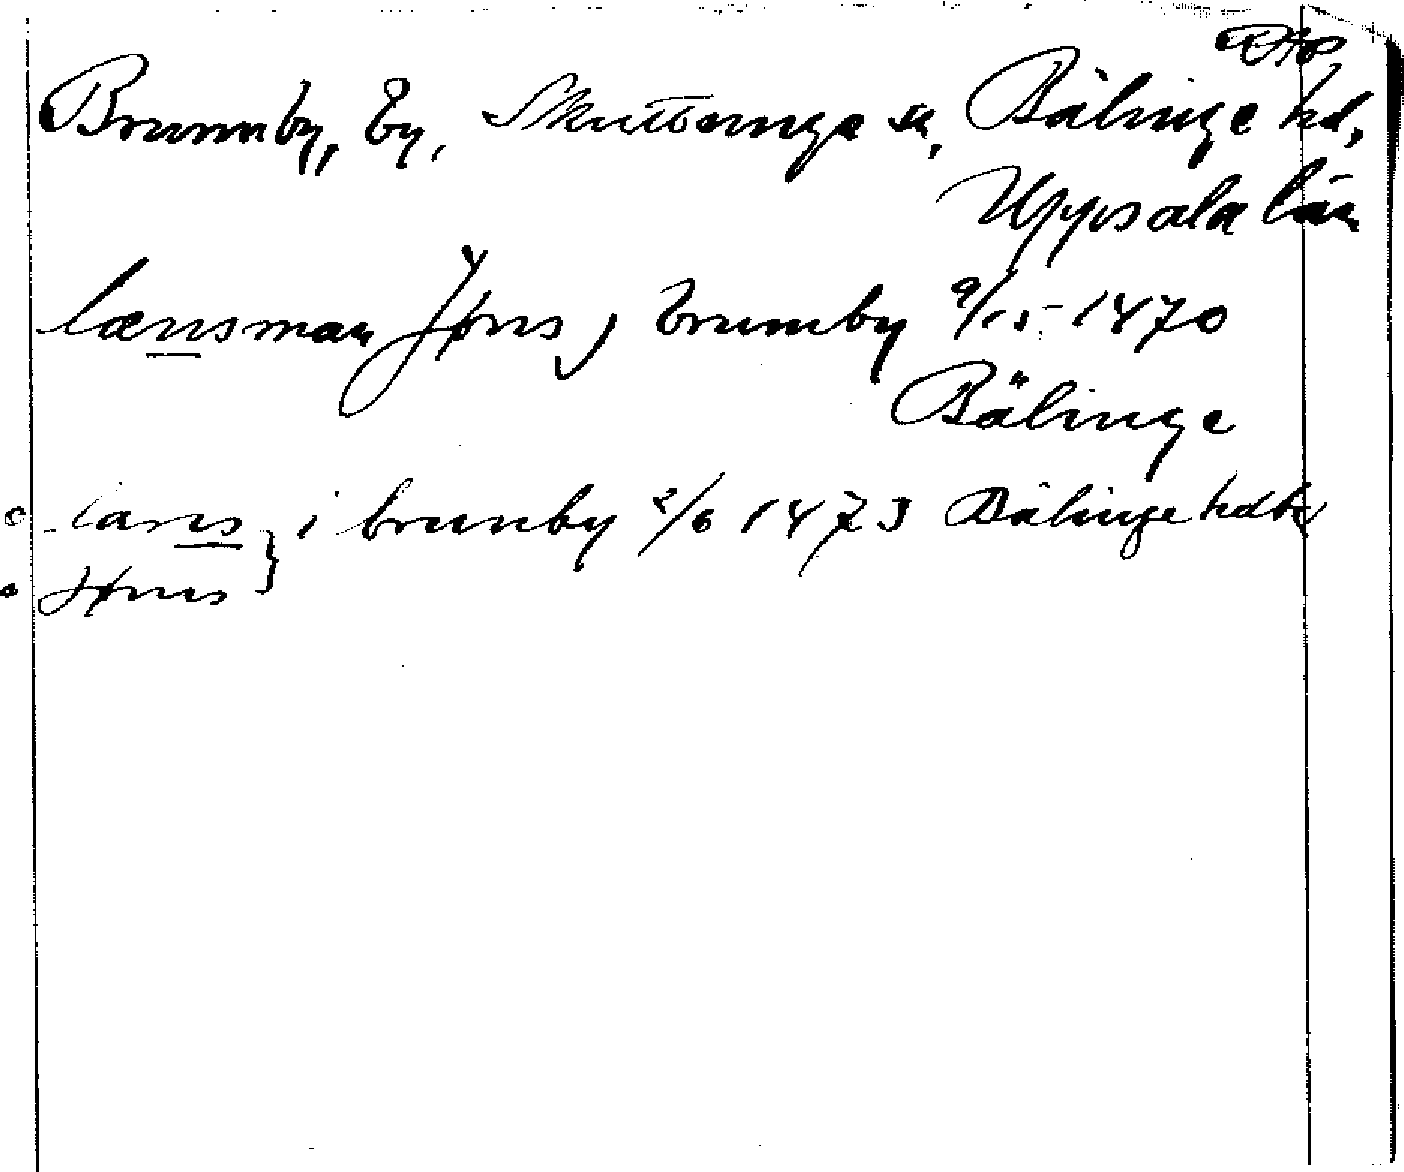 Brunnby, by, Skuttunge sn, Bälinge hd,
Uppsala län
lænsman Jøns j brumby 9/15 1470
Bälinge
lans } i brunby 2/6 1473 Bälinge hdk
Jøns